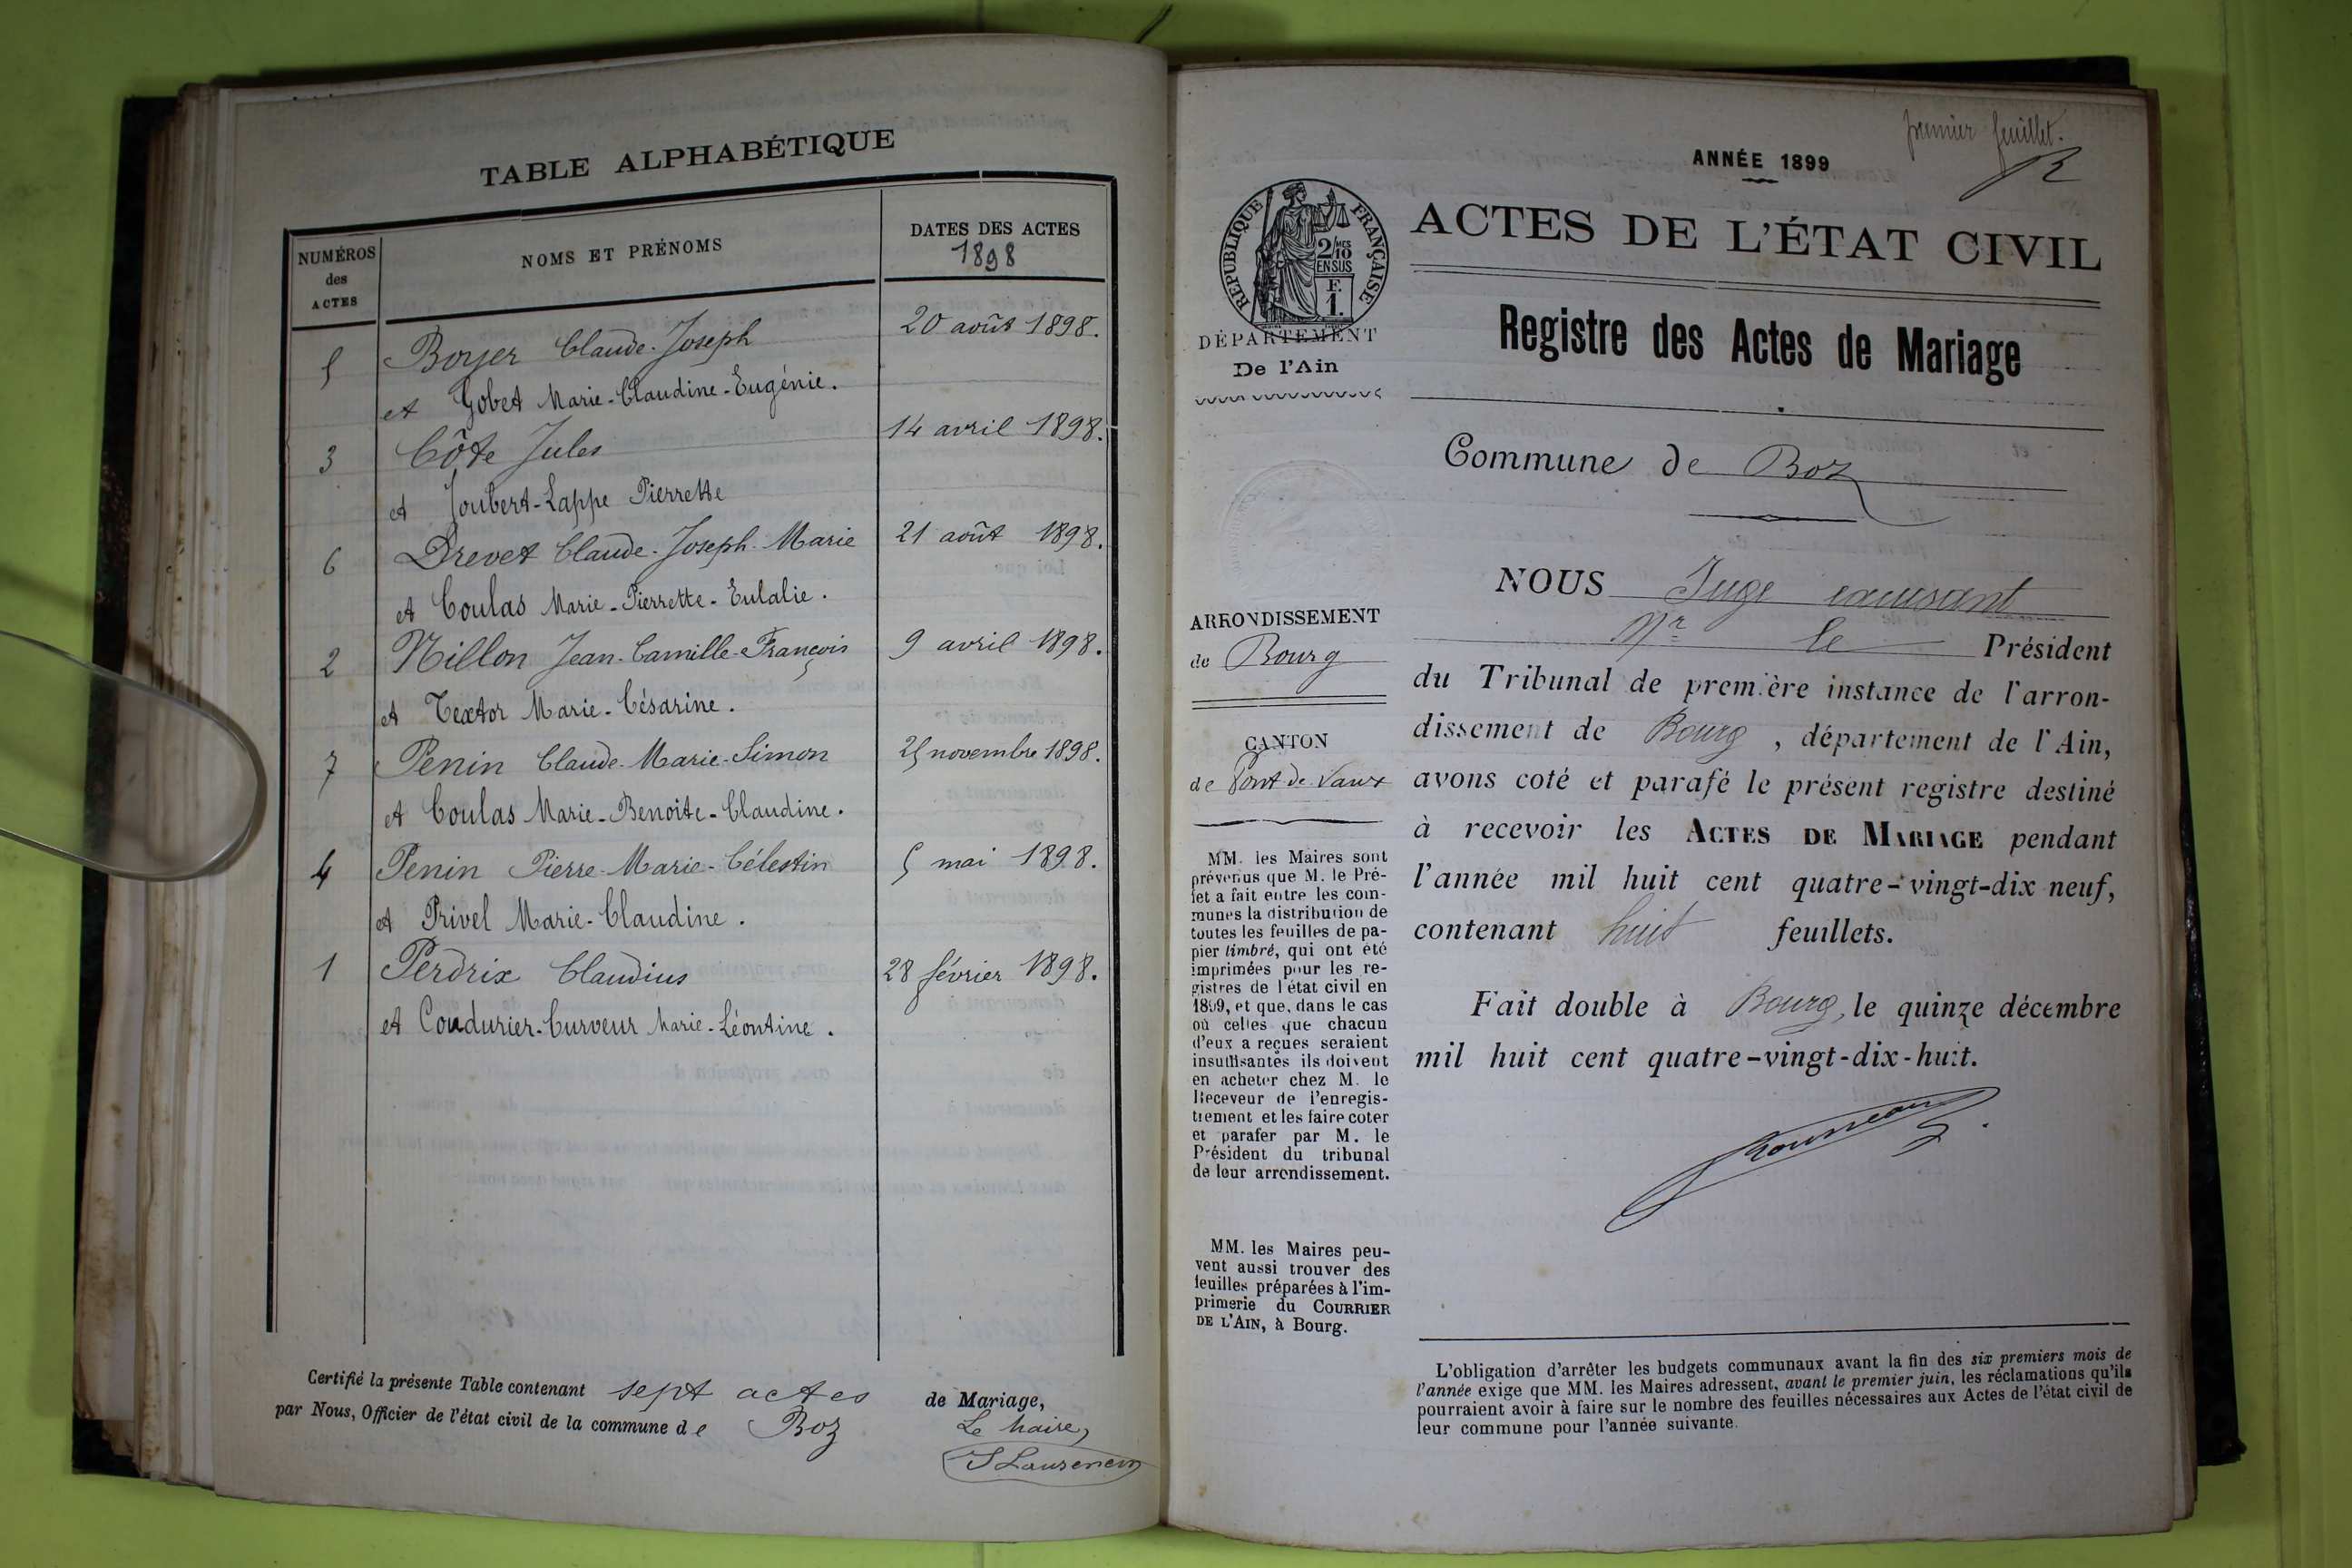 TABLE ALPHABÉTIQUE
NUMÉROS des ACTES
NOMS ET PRÉNOMS
DATES DES ACTES
1898
5 Boyer Claude-Joseph 20 août 1898.
et Gobet Marie-Claudine-Eugénie.
3 Côte Jules 14 avril 1898.
et Joubert-Lappe Pierrette
6 Drevet Claude-Joseph-Marie 21 août 1898.
et Coulas Marie-Pierrette-Eulalie.
2 Millon Jean-Camille-François 9 avril 1898.
et Textor Marie-Césarine.
7 Penin Claude-Marie-Simon 25 novembre 1898.
et Coulas Marie-Benoite-Claudine.
4 Penin Pierre-Marie-Célestin 5 mai 1898.
et Privel Marie-Claudine.
1 Perdrix Claudius 28 février 1898.
et Coudurier-Curveur Marie-Léontine.
Certifié la présente Table contenant sept actes de Mariage,
par Nous, Officier de l'état civil de la commune de Boz
Le Maire,
premier feuillet.
ANNÉE 1899
RÉPUBLIQUE FRANÇAISE
2/10 MES
EN SUS
F.
1.
ACTES DE L'ÉTAT CIVIL
DÉPARTEMENT
De l'Ain
Registre des Actes de Mariage
Commune de Boz
ARRONDISSEMENT
de Bourg
CANTON
de Pont-de-Vaux
MM. les Maires sont
prévenus que M. le Pré-
fet a fait entre les com-
munes la distribution de
toutes les feuilles de pa-
pier timbré, qui ont été
imprimées pour les re-
gistres de l'état civil en
1899, et que, dans le cas
où celles que chacun
d'eux a reçues seraient
insuffisantes ils doivent
en acheter chez M. le
Receveur de l'enregis-
trement et les faire coter
et parafer par M. le
Président du tribunal
de leur arrondissement.
MM. les Maires peu-
vent aussi trouver des
feuilles préparées à l'im-
primerie du COURRIER
DE L'AIN, à Bourg.
NOUS Juge
Mr le Président
du Tribunal de première instance de l'arron-
dissement de Bourg, département de l'Ain,
avons coté et parafé le présent registre destiné
à recevoir les ACTES DE MARIAGE pendant
l'année mil huit cent quatre-vingt-dix neuf,
contenant huit feuillets.
Fait double à Bourg, le quinze décembre
mil huit cent quatre-vingt-dix-huit.
L'obligation d'arrêter les budgets communaux avant la fin des six premiers mois de
l'année exige que MM. les Maires adressent, avant le premier juin, les réclamations qu'ils
pourraient avoir à faire sur le nombre des feuilles nécessaires aux Actes de l'état civil de
leur commune pour l'année suivante.